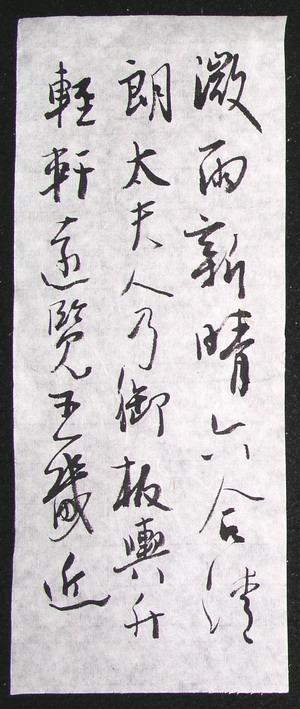 微雨新晴六合清
朗太夫人乃御板輿升
輕軒遠覽王畿近